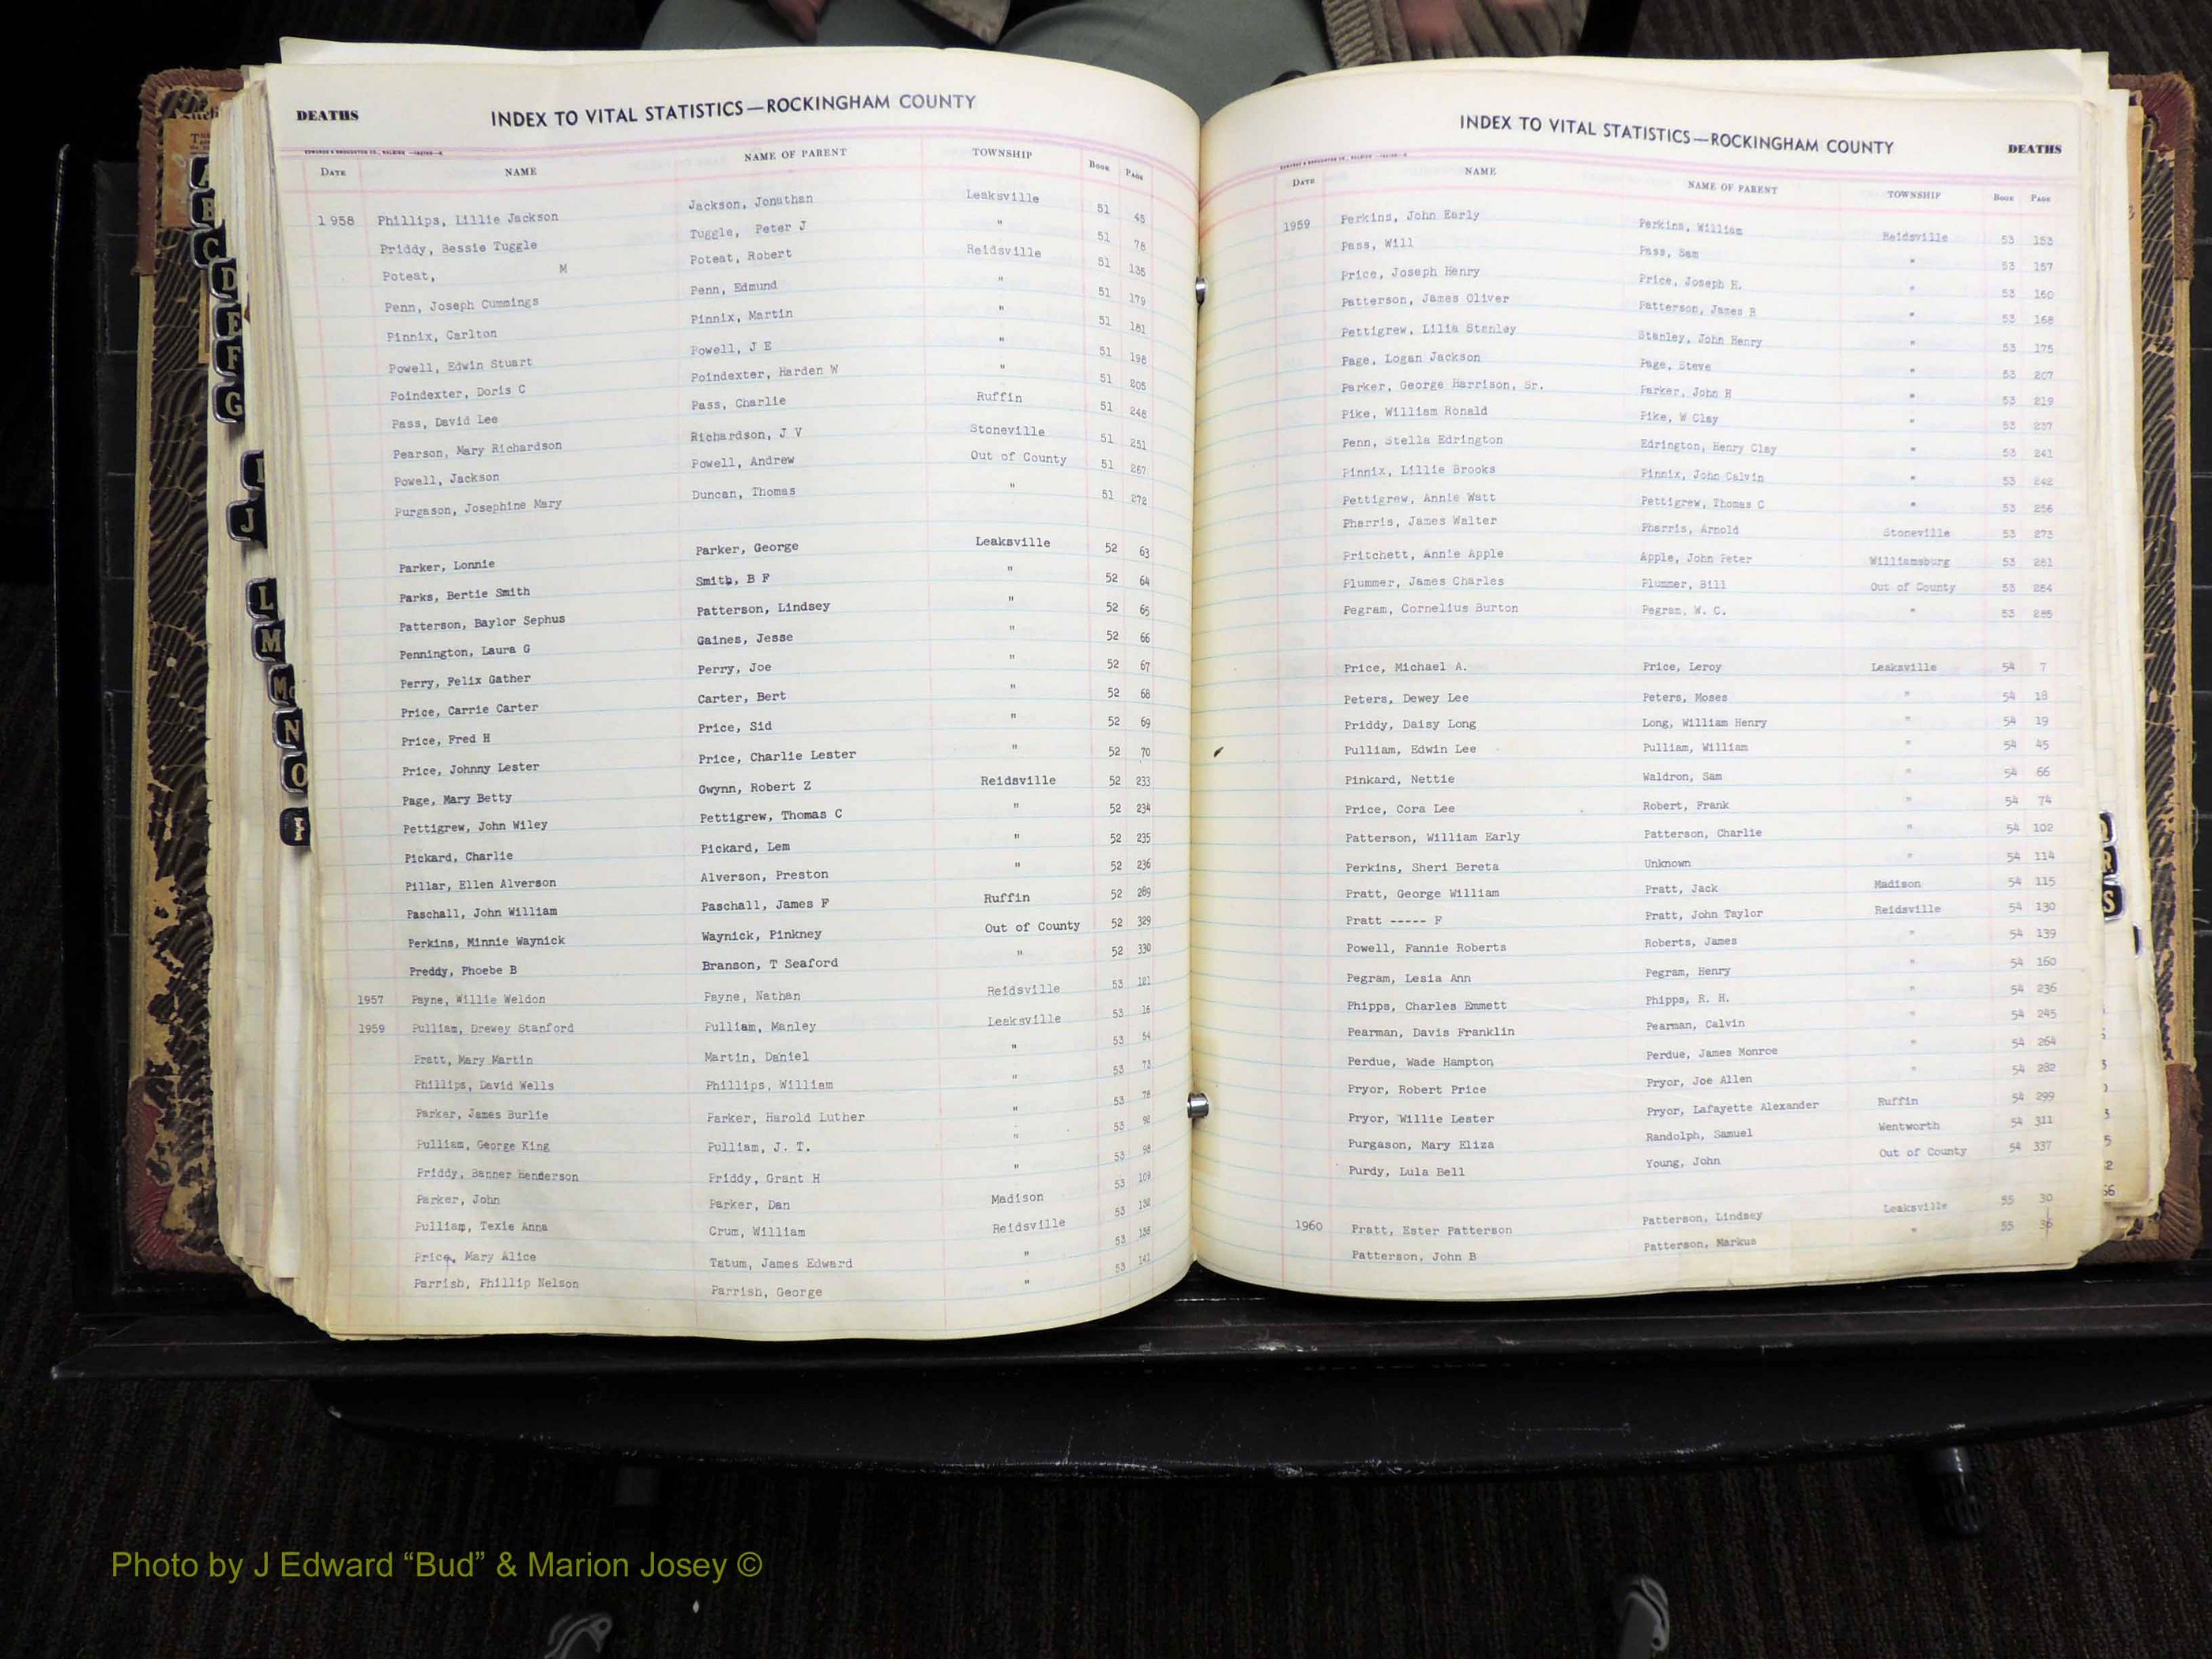 DEATHS INDEX TO VITAL STATISTICS—ROCKINGHAM COUNTY
DATE NAME NAME OF PARENT TOWNSHIP BOOK PAGE
1958 Phillips, Lillie Jackson Jackson, Jonathan Leaksville 51 45
Priddy, Bessie Tuggle Tuggle, Peter J " 51 78
Poteat, M Poteat, Robert Reidsville 51 135
Penn, Joseph Cummings Penn, Edmund " 51 179
Pinnix, Carlton Pinnix, Martin " 51 181
Powell, Edwin Stuart Powell, J E " 51 198
Poindexter, Doris C Poindexter, Harden W " 51 205
Pass, David Lee Pass, Charlie Ruffin 51 248
Pearson, Mary Richardson Richardson, J V Stoneville 51 251
Powell, Jackson Powell, Andrew Out of County 51 267
Purgason, Josephine Mary Duncan, Thomas " 51 272
Parker, Lonnie Parker, George Leaksville 52 63
Parks, Bertie Smith Smith, B F " 52 64
Patterson, Baylor Sephus Patterson, Lindsey " 52 65
Pennington, Laura G Gaines, Jesse " 52 66
Perry, Felix Gather Perry, Joe " 52 67
Price, Carrie Carter Carter, Bert " 52 68
Price, Fred H Price, Sid " 52 69
Price, Johnny Lester Price, Charlie Lester " 52 70
Page, Mary Betty Gwynn, Robert Z Reidsville 52 233
Pettigrew, John Wiley Pettigrew, Thomas C " 52 234
Pickard, Charlie Pickard, Lem " 52 235
Pillar, Ellen Alverson Alverson, Preston " 52 236
Paschall, John William Paschall, James F Ruffin 52 289
Perkins, Minnie Waynick Waynick, Pinkney Out of County 52 329
Preddy, Phoebe B Branson, T Seaford " 52 330
1957 Payne, Willie Weldon Payne, Nathan Reidsville 53 121
1959 Pulliam, Drewey Stanford Pulliam, Manley Leaksville 53 16
Pratt, Mary Martin Martin, Daniel " 53 54
Phillips, David Wells Phillips, William " 53 73
Parker, James Burlie Parker, Harold Luther " 53 78
Pulliam, George King Pulliam, J. T. " 53 92
Priddy, Banner Henderson Priddy, Grant H " 53 98
Parker, John Parker, Dan Madison 53 109
Pulliam, Texie Anna Crum, William Reidsville 53 132
Price, Mary Alice Tatum, James Edward " 53 135
Parrish, Phillip Nelson Parrish, George " 53 141
INDEX TO VITAL STATISTICS—ROCKINGHAM COUNTY DEATHS
DATE NAME NAME OF PARENT TOWNSHIP BOOK PAGE
1959 Perkins, John Early Perkins, William Reidsville 53 153
Pass, Will Pass, Sam " 53 157
Price, Joseph Henry Price, Joseph H. " 53 160
Patterson, James Oliver Patterson, James R " 53 168
Pettigrew, Lilia Stanley Stanley, John Henry " 53 175
Page, Logan Jackson Page, Steve " 53 207
Parker, George Harrison, Sr. Parker, John H " 53 219
Pike, William Ronald Pike, W Clay " 53 237
Penn, Stella Edrington Edrington, Henry Clay " 53 241
Pinnix, Lillie Brooks Pinnix, John Calvin " 53 242
Pettigrew, Annie Watt Pettigrew, Thomas C " 53 256
Pharris, James Walter Pharris, Arnold Stoneville 53 273
Pritchett, Annie Apple Apple, John Peter Williamsburg 53 281
Plummer, James Charles Plummer, Bill Out of County 53 284
Pegram, Cornelius Burton Pegram, W. C. " 53 285
Price, Michael A. Price, Leroy Leaksville 54 7
Peters, Dewey Lee Peters, Moses " 54 18
Priddy, Daisy Long Long, William Henry " 54 19
Pulliam, Edwin Lee Pulliam, William " 54 45
Pinkard, Nettie Waldron, Sam " 54 66
Price, Cora Lee Robert, Frank " 54 74
Patterson, William Early Patterson, Charlie " 54 102
Perkins, Sheri Bereta Unknown " 54 114
Pratt, George William Pratt, Jack Madison 54 115
Pratt ----- F Pratt, John Taylor Reidsville 54 130
Powell, Fannie Roberts Roberts, James " 54 139
Pegram, Lesia Ann Pegram, Henry " 54 160
Phipps, Charles Emmett Phipps, R. H. " 54 236
Pearman, Davis Franklin Pearman, Calvin " 54 245
Perdue, Wade Hampton Perdue, James Monroe " 54 264
Pryor, Robert Price Pryor, Joe Allen " 54 282
Pryor, Willie Lester Pryor, Lafayette Alexander Ruffin 54 299
Purgason, Mary Eliza Randolph, Samuel Wentworth 54 311
Purdy, Lula Bell Young, John Out of County 54 337
1960 Pratt, Ester Patterson Patterson, Lindsey Leaksville 55 30
Patterson, John B Patterson, Markus " 55 36
D
E
F
G
J
L
M
Mc
N
O
R
S
Photo by J Edward “Bud” & Marion Josey ©